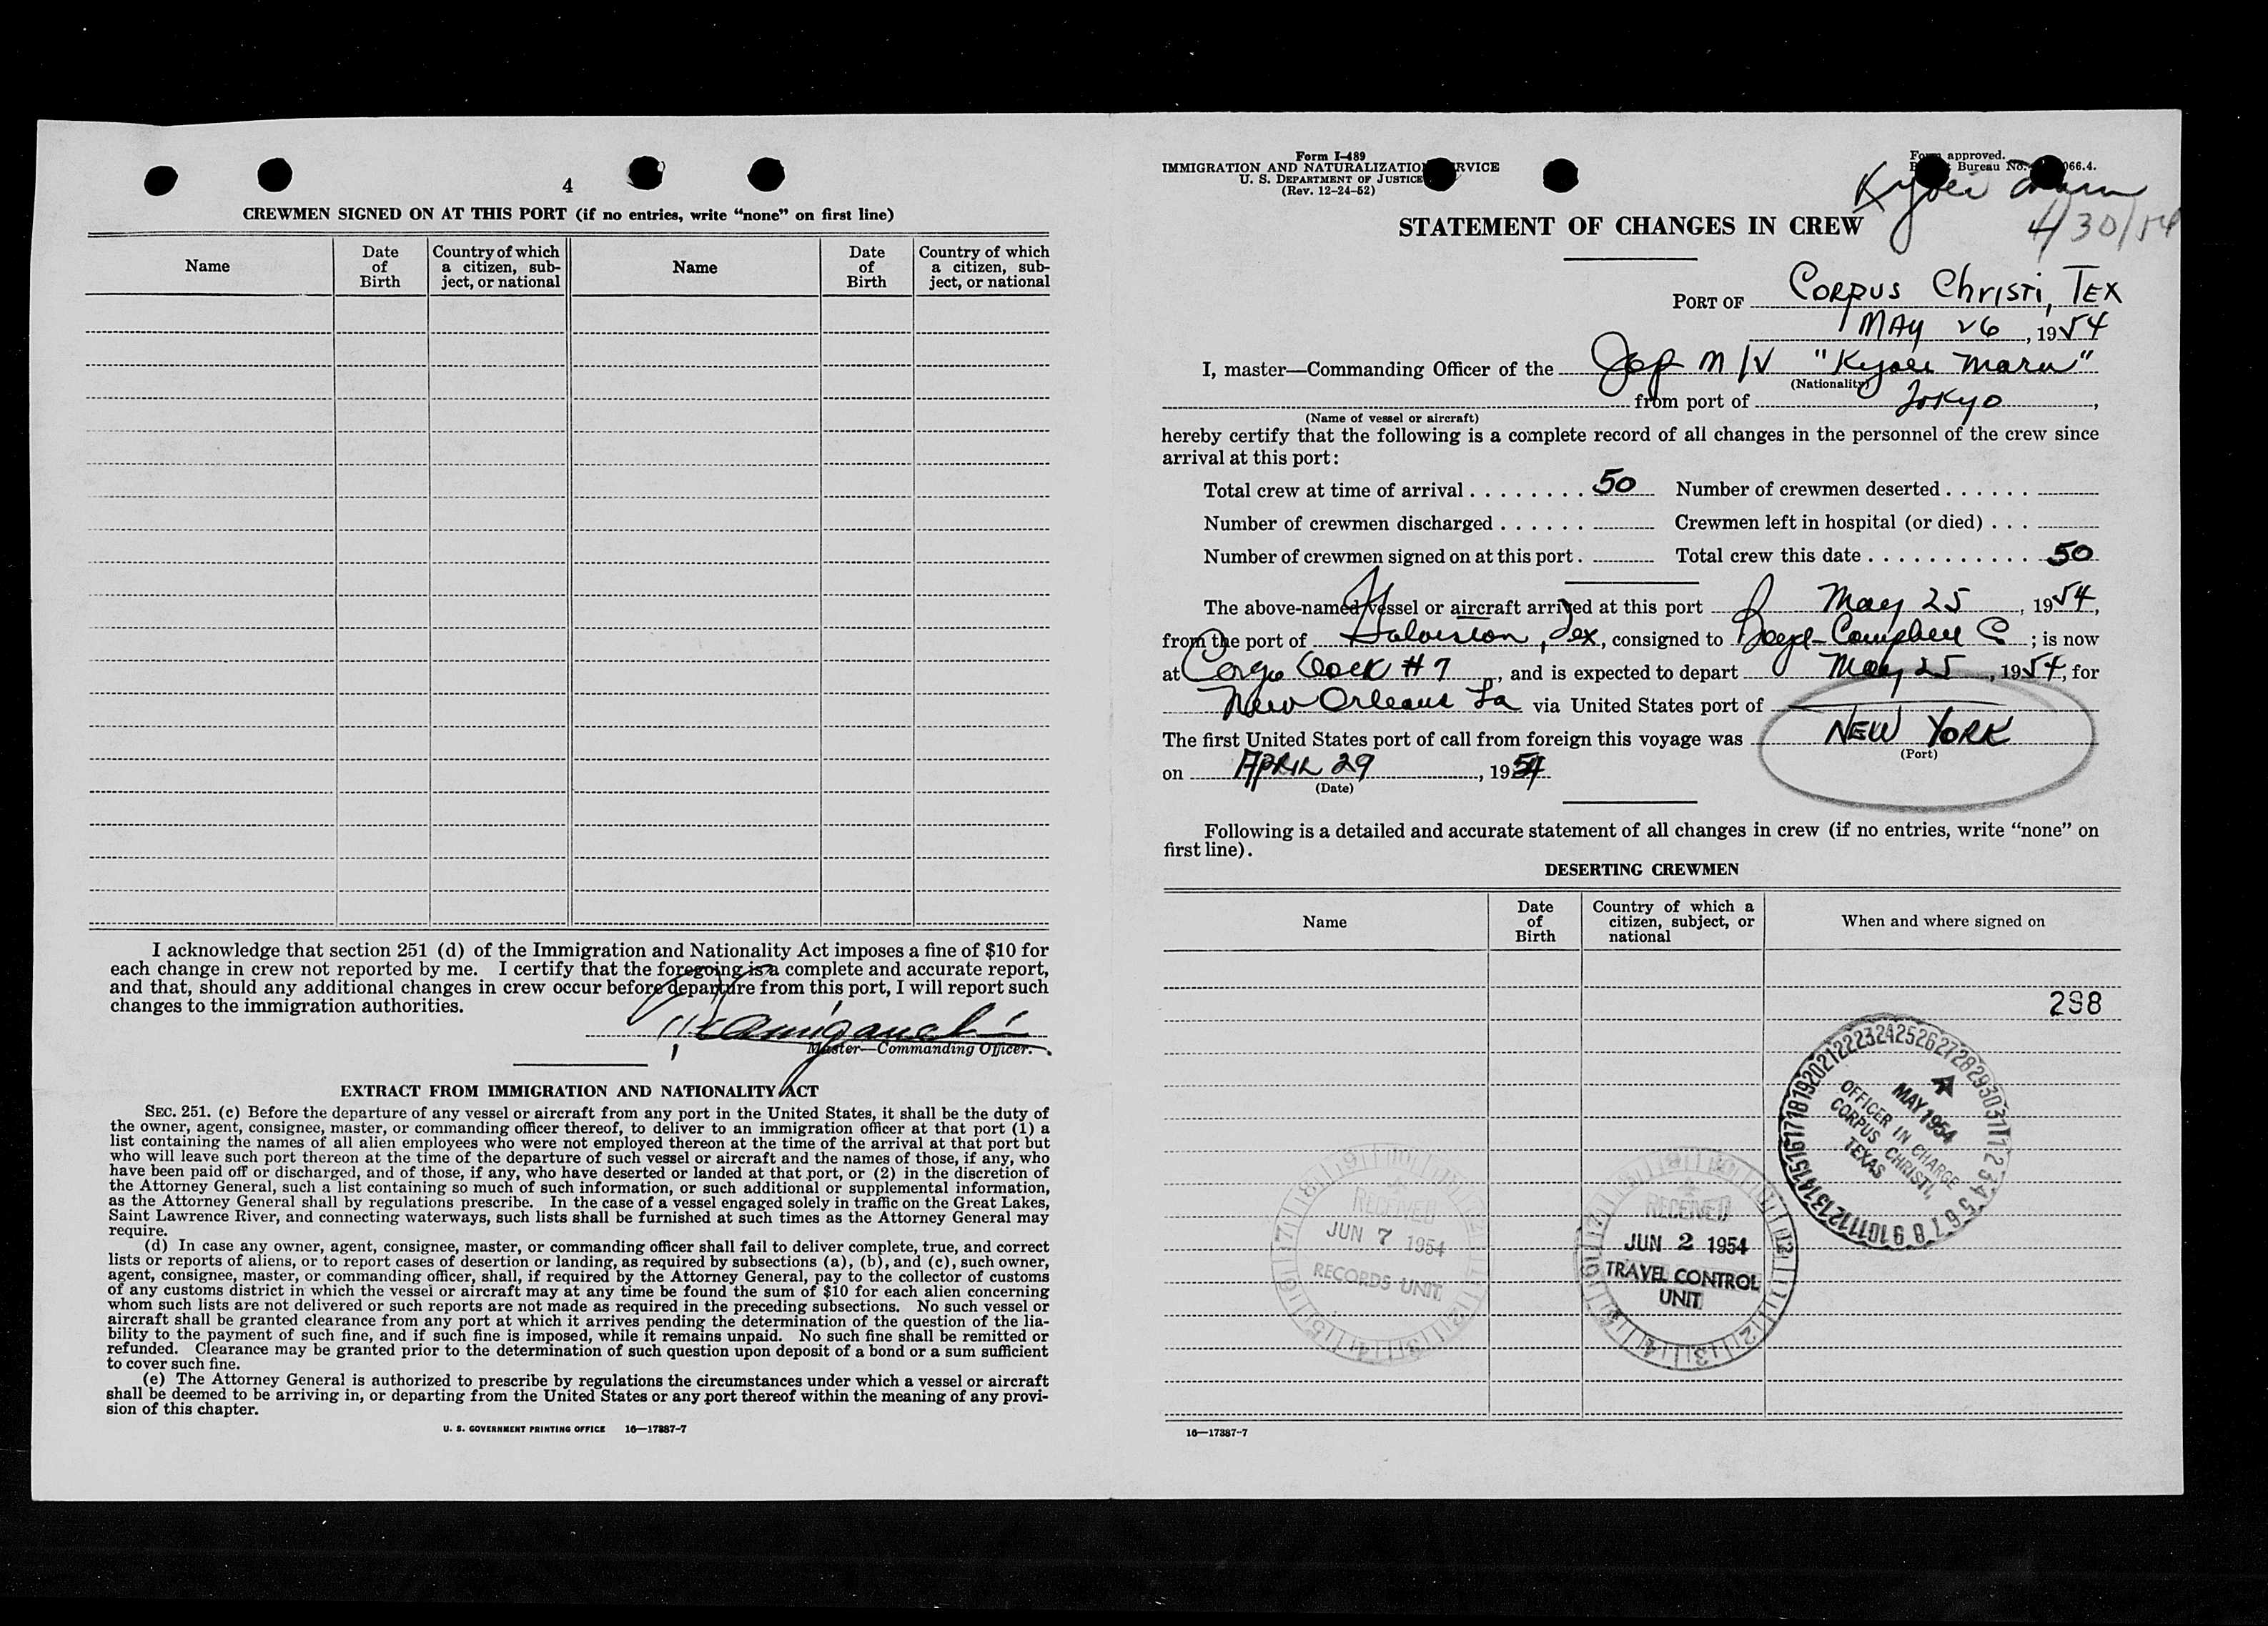 4
CREWMEN SIGNED ON AT THIS PORT (if no entries, write “none” on first line)
Name
Date of Birth
Country of which a citizen, sub-
ject, or national
Name
Date of Birth
Country of which a citizen, sub-
ject, or national
I acknowledge that section 251 (d) of the Immigration and Nationality Act imposes a fine of $10 for
each change in crew not reported by me. I certify that the foregoing is a complete and accurate report,
and that, should any additional changes in crew occur before departure from this port, I will report such
changes to the immigration authorities.
Master—Commanding Officer.
EXTRACT FROM IMMIGRATION AND NATIONALITY ACT
SEC. 251. (c) Before the departure of any vessel or aircraft from any port in the United States, it shall be the duty of
the owner, agent, consignee, master, or commanding officer thereof, to deliver to an immigration officer at that port (1) a
list containing the names of all alien employees who were not employed thereon at the time of the arrival at that port but
who will leave such port thereon at the time of the departure of such vessel or aircraft and the names of those, if any, who
have been paid off or discharged, and of those, if any, who have deserted or landed at that port, or (2) in the discretion of
the Attorney General, such a list containing so much of such information, or such additional or supplemental information,
as the Attorney General shall by regulations prescribe. In the case of a vessel engaged solely in traffic on the Great Lakes,
Saint Lawrence River, and connecting waterways, such lists shall be furnished at such times as the Attorney General may
require.
(d) In case any owner, agent, consignee, master, or commanding officer shall fail to deliver complete, true, and correct
lists or reports of aliens, or to report cases of desertion or landing, as required by subsections (a), (b), and (c), such owner,
agent, consignee, master, or commanding officer, shall, if required by the Attorney General, pay to the collector of customs
of any customs district in which the vessel or aircraft may at any time be found the sum of $10 for each alien concerning
whom such lists are not delivered or such reports are not made as required in the preceding subsections. No such vessel or
aircraft shall be granted clearance from any port at which it arrives pending the determination of the question of the lia-
bility to the payment of such fine, and if such fine is imposed, while it remains unpaid. No such fine shall be remitted or
refunded. Clearance may be granted prior to the determination of such question upon deposit of a bond or a sum sufficient
to cover such fine.
(e) The Attorney General is authorized to prescribe by regulations the circumstances under which a vessel or aircraft
shall be deemed to be arriving in, or departing from the United States or any port thereof within the meaning of any provi-
sion of this chapter.
U. S. GOVERNMENT PRINTING OFFICE 16—17387-7
Form I-489
IMMIGRATION AND NATURALIZATIO RVICE
U. S. DEPARTMENT OF JUSTICE
(Rev. 12-24-52)
approved.
Bureau No. 066.4.
4/30/54
STATEMENT OF CHANGES IN CREW
PORT OF Corpus Christi, Tex
May 26, 1954
I, master—Commanding Officer of the Jap M/V "Kyoei Maru"
(Nationality)
from port of Tokyo,
(Name of vessel or aircraft)
hereby certify that the following is a complete record of all changes in the personnel of the crew since
arrival at this port:
Total crew at time of arrival ........ 50 Number of crewmen deserted ......
Number of crewmen discharged ...... Crewmen left in hospital (or died) ...
Number of crewmen signed on at this port . Total crew this date ............ 50
The above-named vessel or aircraft arrived at this port May 25, 1954,
from the port of Galveston, Tex, consigned to Boyd-Campbell Co; is now
at Cargo Dock #7, and is expected to depart May 25, 1954, for
New Orleans La via United States port of
The first United States port of call from foreign this voyage was NEW YORK
(Port)
on APRIL 29, 1954
(Date)
Following is a detailed and accurate statement of all changes in crew (if no entries, write “none” on
first line).
DESERTING CREWMEN
Name
Date of Birth
Country of which a citizen, subject, or national
When and where signed on
298
MAY 1954
OFFICER IN CHARGE
CORPUS CHRISTI,
TEXAS
RECEIVED
JUN 7 1954
RECORDS UNIT
RECEIVED
JUN 2 1954
TRAVEL CONTROL
UNIT
16—17387-7